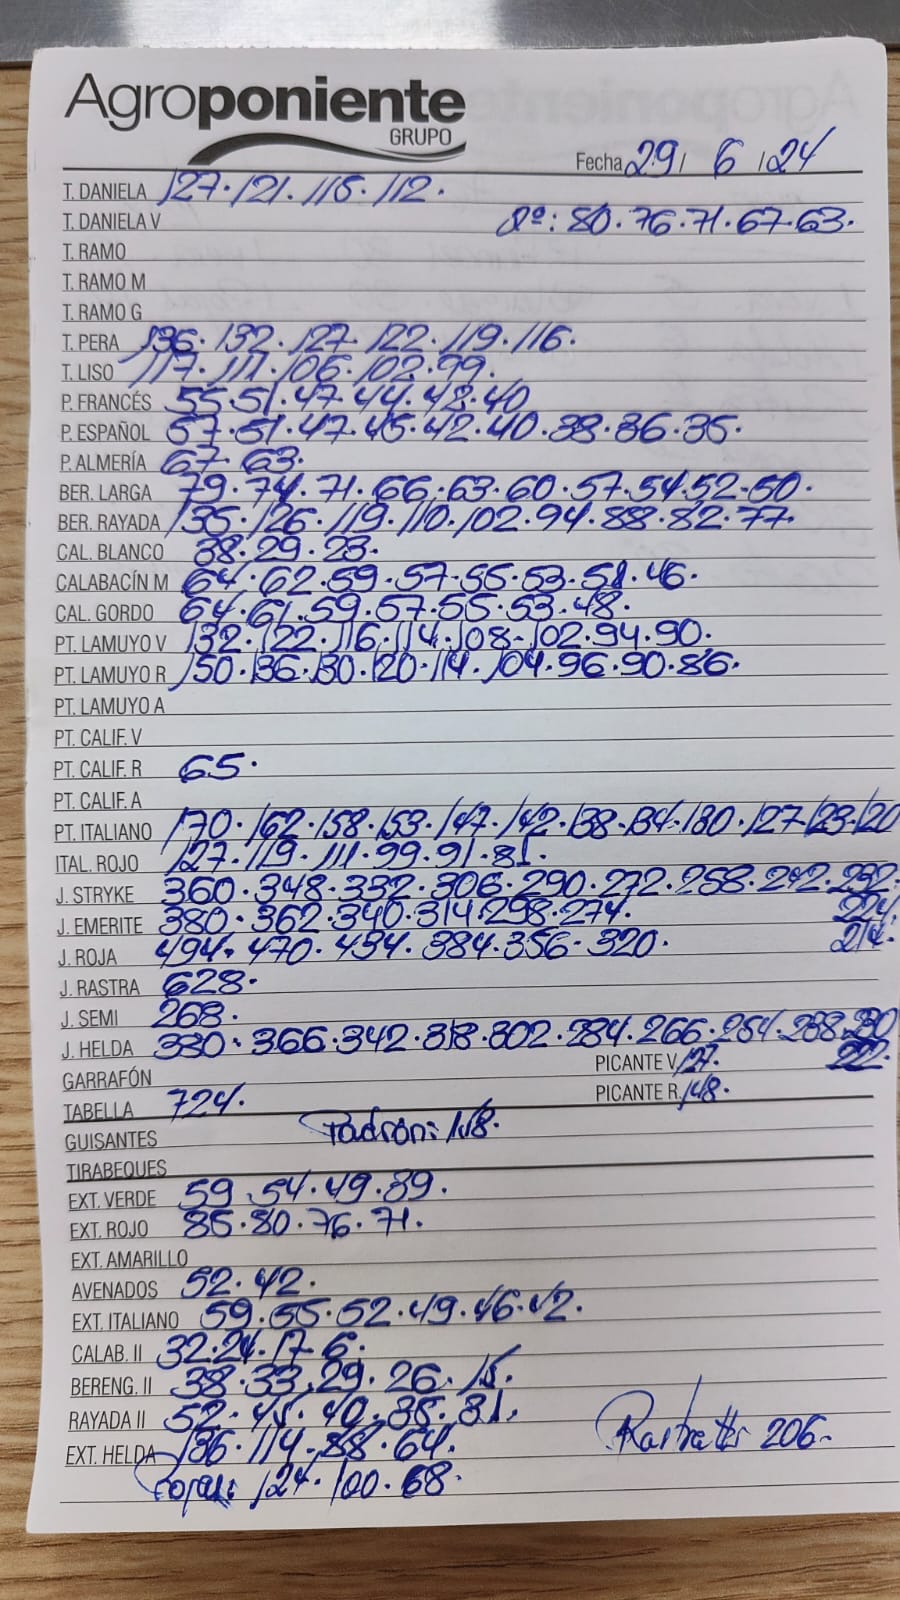 Agroponiente
GRUPO
Fecha 29/ 6 /24
T. DANIELA 127. 121. 115. 112.
T. DANIELA V 2ª: 80. 76. 71. 67. 63.
T. RAMO
T. RAMO M
T. RAMO G
T. PERA 136. 132. 127. 122. 119. 116.
T. LISO 117. 111. 106. 102. 99.
P. FRANCÉS 55. 51. 47. 44. 42. 40
P. ESPAÑOL 57. 51. 47. 45. 42. 40. 38. 36. 35.
P. ALMERÍA 67. 63.
BER. LARGA 79. 74. 71. 66. 63. 60. 57. 54. 52. 50.
BER. RAYADA 135. 126. 119. 110. 102. 94. 88. 82. 77.
CAL. BLANCO 38. 29. 23.
CALABACÍN M 64. 62. 59. 57. 55. 53. 51. 46.
CAL. GORDO 64. 61. 59. 57. 55. 53. 48.
PT. LAMUYO V 132. 122. 116. 114. 108. 102. 94. 90.
PT. LAMUYO R 150. 136. 130. 120. 114. 104. 96. 90. 86.
PT. LAMUYO A
PT. CALIF. V
PT. CALIF. R 65.
PT. CALIF. A
PT. ITALIANO 170. 162. 158. 153. 147. 142. 138. 134. 130. 127. 123. 120
ITAL. ROJO 127. 119. 111. 99. 91. 81.
J. STRYKE 360. 348. 332. 306. 290. 272. 258. 242. 232.
J. EMERITE 380. 362. 340. 314. 298. 274. 224.
J. ROJA 494. 470. 434. 384. 356. 320. 214.
J. RASTRA 628.
J. SEMI 268.
J. HELDA 380. 366. 342. 318. 302. 284. 266. 254. 238. 230
GARRAFÓN PICANTE V 127. 222.
TABELLA 724. PICANTE R 148.
GUISANTES Padrón: 118.
TIRABEQUES
EXT. VERDE 59. 54. 49. 39.
EXT. ROJO 85. 80. 76. 71.
EXT. AMARILLO
AVENADOS 52. 42.
EXT. ITALIANO 59. 55. 52. 49. 46. 42.
CALAB. II 32. 24. 17. 6.
BERENG. II 38. 33. 29. 26. 15.
RAYADA II 52. 45. 40. 35. 31.
EXT. HELDA 136. 114. 88. 64. 206.
124. 100. 68.